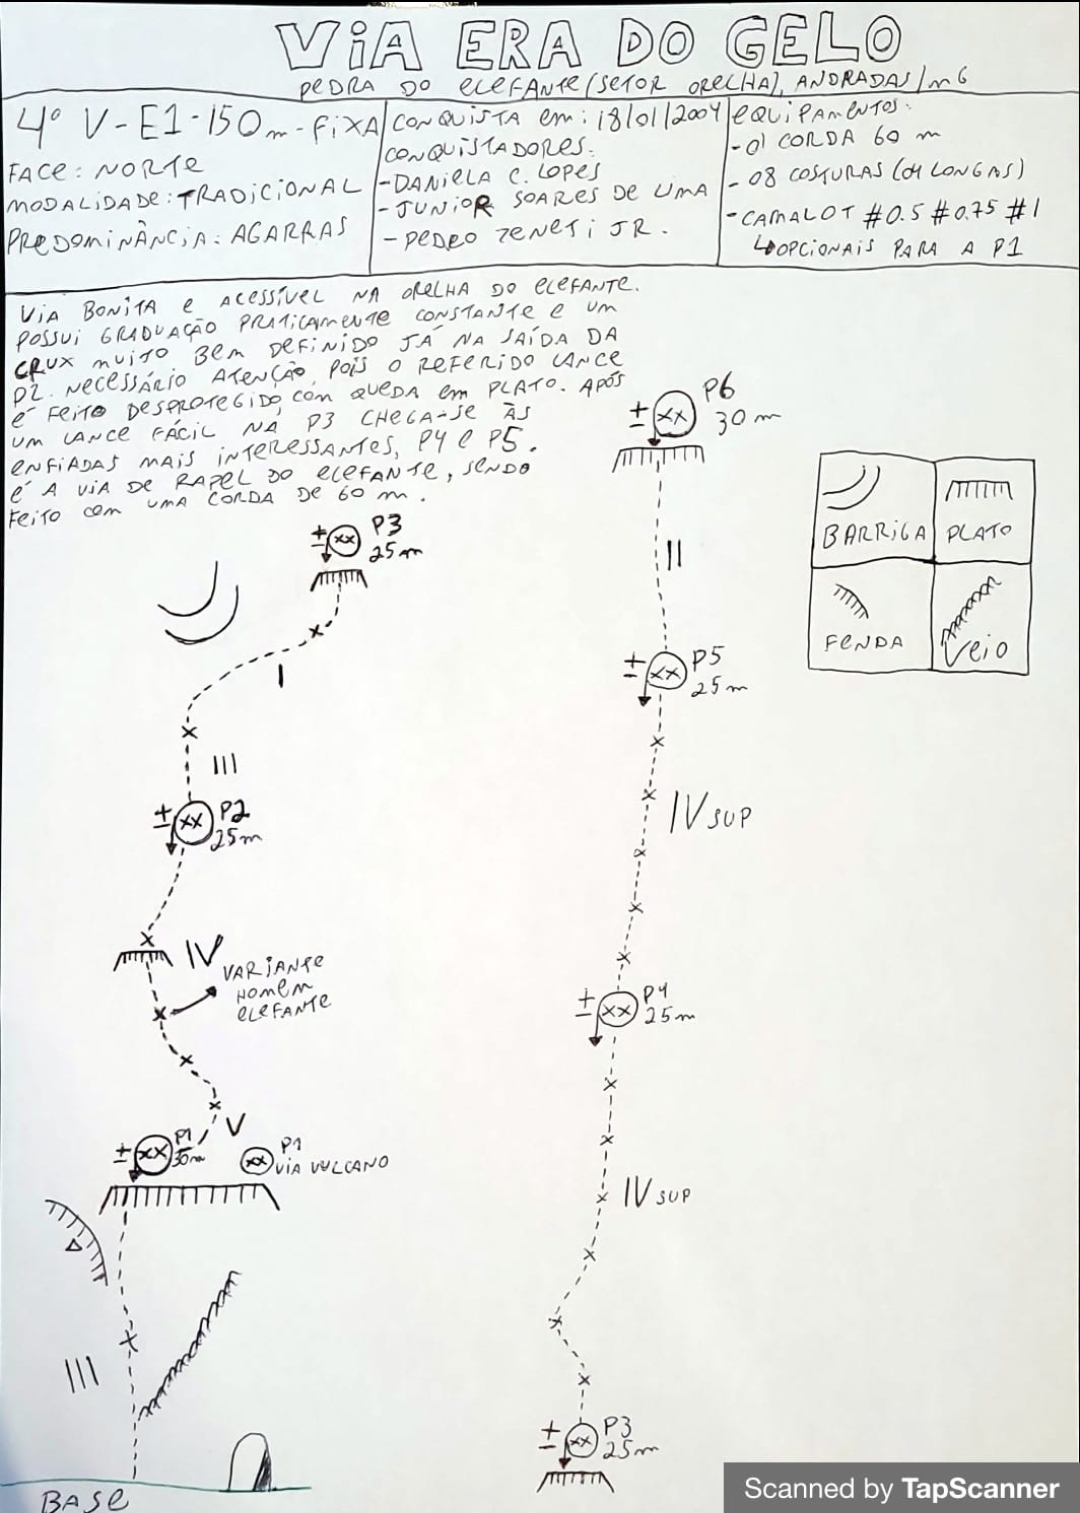 VIA ERA DO GELO
PEDRA DO ELEFANTE (SETOR ORELHA), ANDRADAS/MG
4º V-E1-150m-FIXA
FACE: NORTE
MODALIDADE: TRADICIONAL
PREDOMINÂNCIA: AGARRAS
CONQUISTA EM: 18/01/2004
CONQUISTADORES:
-DANIELA C. LOPES
-JUNIOR SOARES DE LIMA
-PEDRO ZENETI JR.
EQUIPAMENTOS:
-01 CORDA 60 m
-08 COSTURAS (04 LONGAS)
-CAMALOT #0.5 #0.75 #1
↳OPCIONAIS PARA A P1
VIA BONITA E ACESSÍVEL NA ORELHA DO ELEFANTE.
POSSUI GRADUAÇÃO PRATICAMENTE CONSTANTE E UM
CRUX MUITO BEM DEFINIDO JÁ NA SAÍDA DA
P2. NECESSÁRIO ATENÇÃO, POIS O REFERIDO LANCE
É FEITO DESPROTEGIDO, COM QUEDA EM PLATO. APÓS
UM LANCE FÁCIL NA P3 CHEGA-SE ÀS
ENFIADAS MAIS INTERESSANTES, P4 E P5.
É A VIA DE RAPEL DO ELEFANTE, SENDO
FEITO COM UMA CORDA DE 60 m.
P3
± XX
25m
I
III
± XX P2
25m
IV
VARIANTE
HOMEM
ELEFANTE
V
± XX P1
30m
XX P1
VIA VULCANO
III
BASE
± XX P6
30m
II
± XX P5
25m
IV SUP
± XX P4
25m
IV SUP
± XX P3
25m
BARRIGA
PLATO
FENDA
VEIO
Scanned by TapScanner